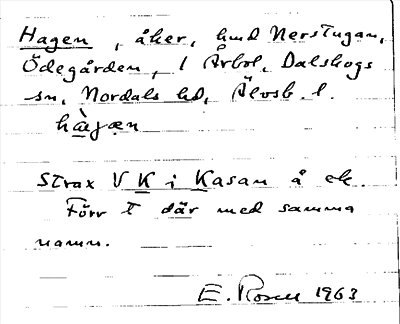 Hagen, åker, hmd Nerstugan,
Ödegården, 1 Årbol, Dalskogs
sn, Nordals hd, Älvsb. l.
hàgæn
Strax V K i Kasan å ek.
Förr t där med samma
namn.
E. Rosen 1963